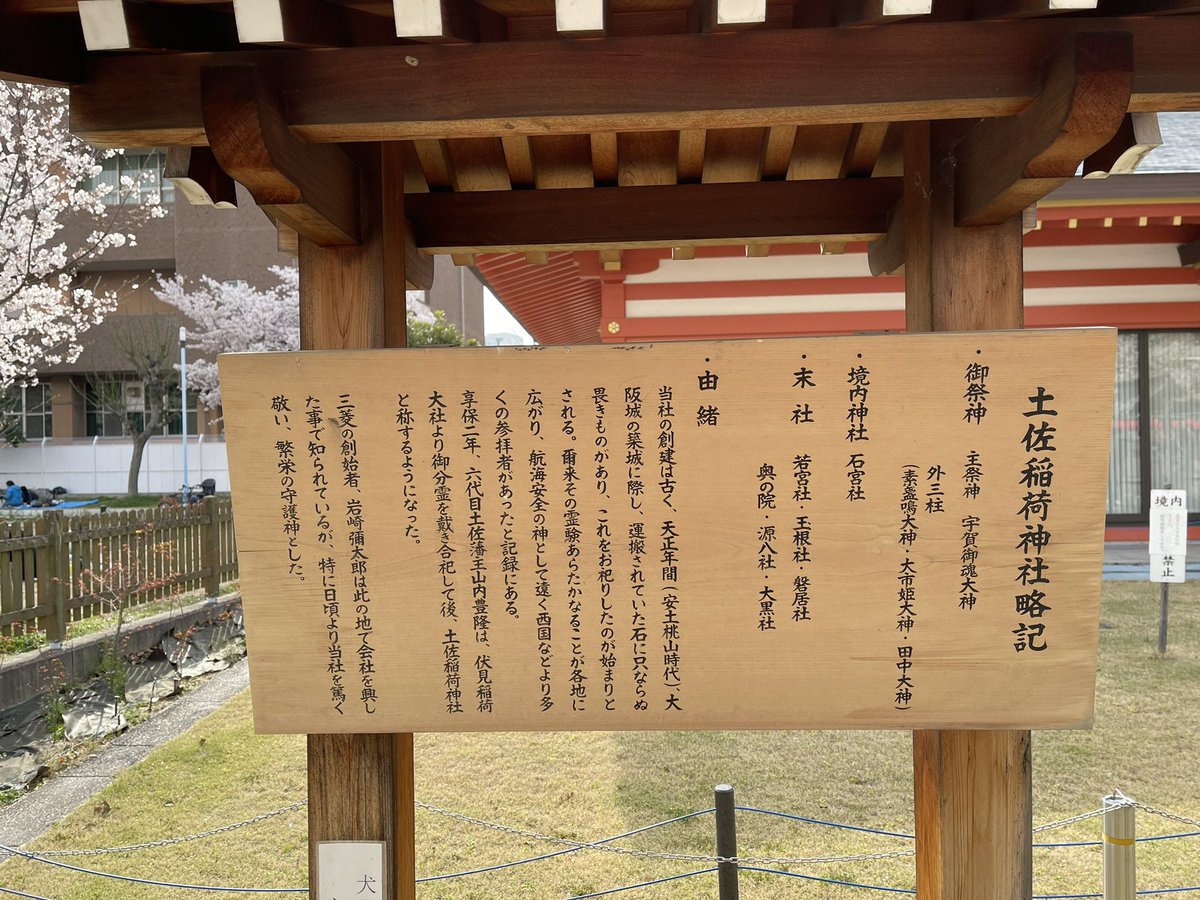 土佐稲荷神社略記
・御祭神 主祭神 宇賀御魂大神
外三柱
(素盞鳴大神・大市姫大神・田中大神)
・境内神社 石宮社
・末社 若宮社・玉根社・磐居社
奥の院・源八社・大黒社
・由緒
当社の創建は古く、天正年間(安土桃山時代)、大
阪城の築城に際し、運搬されていた石に只ならぬ
畏きものがあり、これをお祀りしたのが始まりと
される。爾来その霊験あらたかなることが各地に
広がり、航海安全の神として遠く西国などより多
くの参拝者があったと記録にある。
享保二年、六代目土佐藩主山内豊隆は、伏見稲荷
大社より御分霊を戴き合祀して後、土佐稲荷神社
と称するようになった。
三菱の創始者、岩崎彌太郎は此の地で会社を興し
た事で知られているが、特に日頃より当社を篤く
敬い、繁栄の守護神とした。
境内
禁止
犬